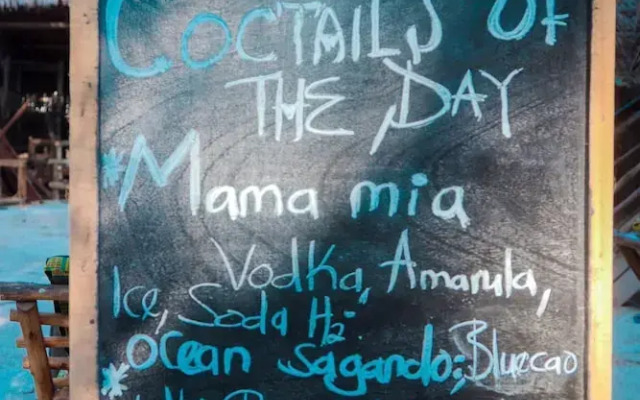 COCTAILS OF
THE DAY
*Mama mia
Vodka, Amarula,
Ice, Soda H2.
*Ocean Sagando; Bluecao